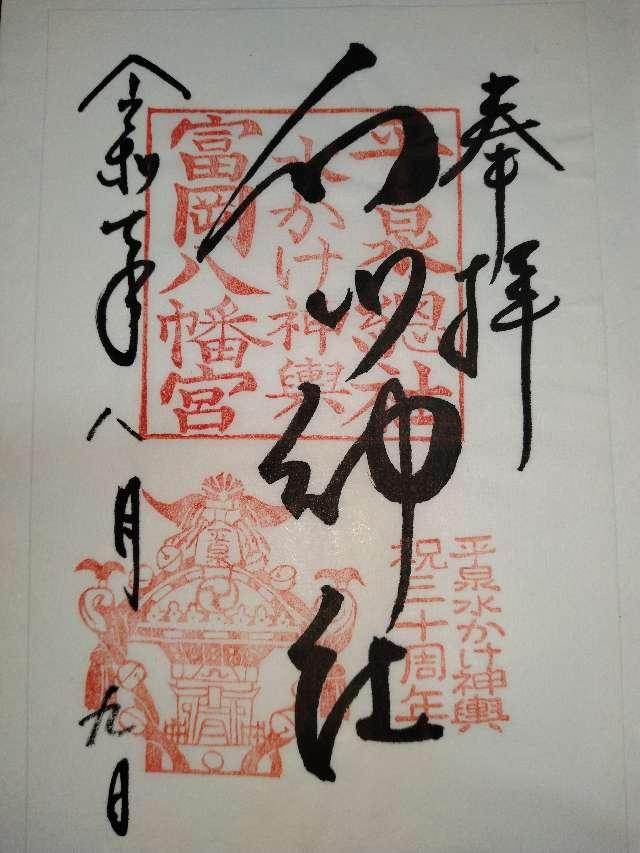 奉拝
白山神社
令和六年八月九日
平泉總社
水かけ神輿
富岡八幡宮
平泉水かけ神輿
祝三十周年
平泉